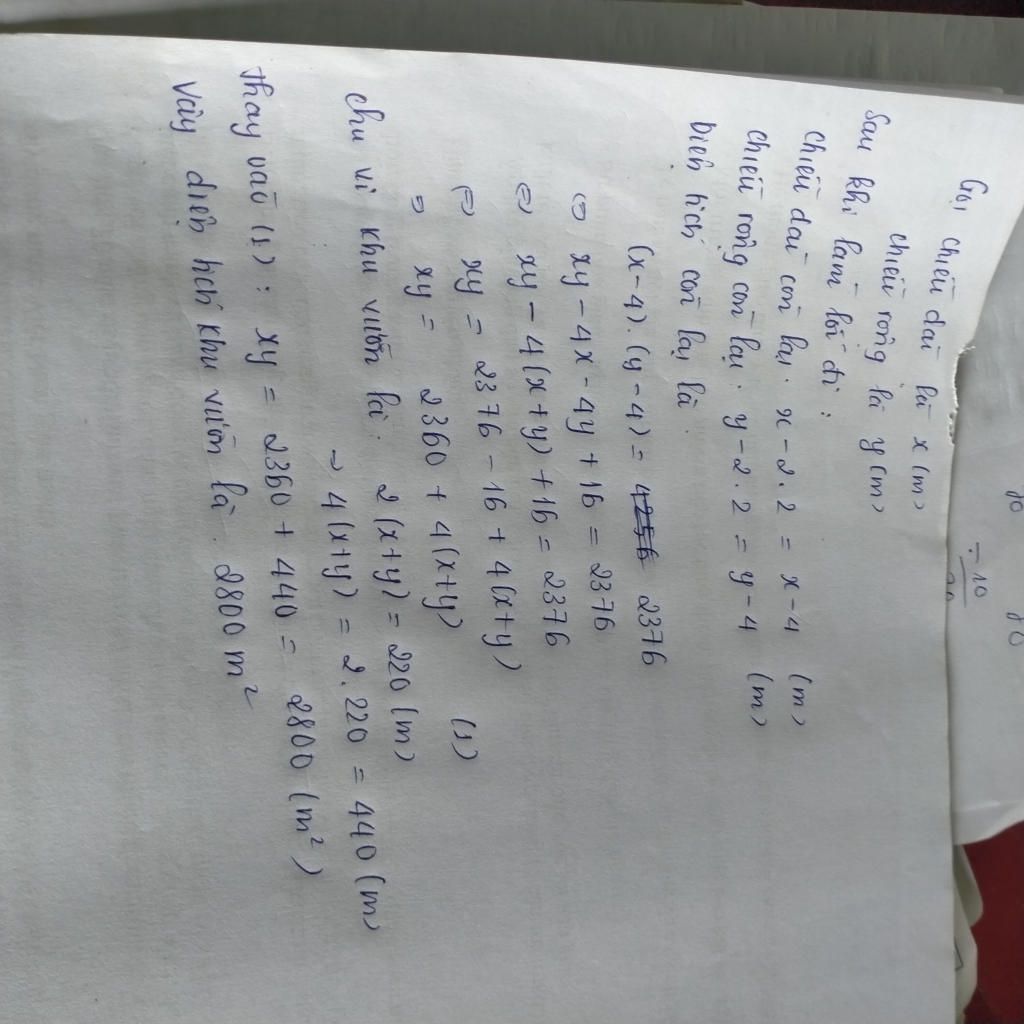 Gọi chiều dài là x (m)
chiều rộng là y (m)
Sau khi làm lối đi :
chiều dài còn lại : x - 2 . 2 = x - 4 (m)
chiều rộng còn lại : y - 2 . 2 = y - 4 (m)
Diện tích còn lại là
(x - 4) . (y - 4) = 2376
⇔ xy - 4x - 4y + 16 = 2376
⇔ xy - 4(x + y) + 16 = 2376
⇔ xy = 2376 - 16 + 4(x + y)
⇒ xy = 2360 + 4(x + y) (1)
Chu vi khu vườn là : 2(x + y) = 220 (m)
→ 4(x + y) = 2 . 220 = 440 (m)
Thay vào (1) : xy = 2360 + 440 = 2800 (m²)
Vậy diện tích khu vườn là 2800 m²
÷ 10